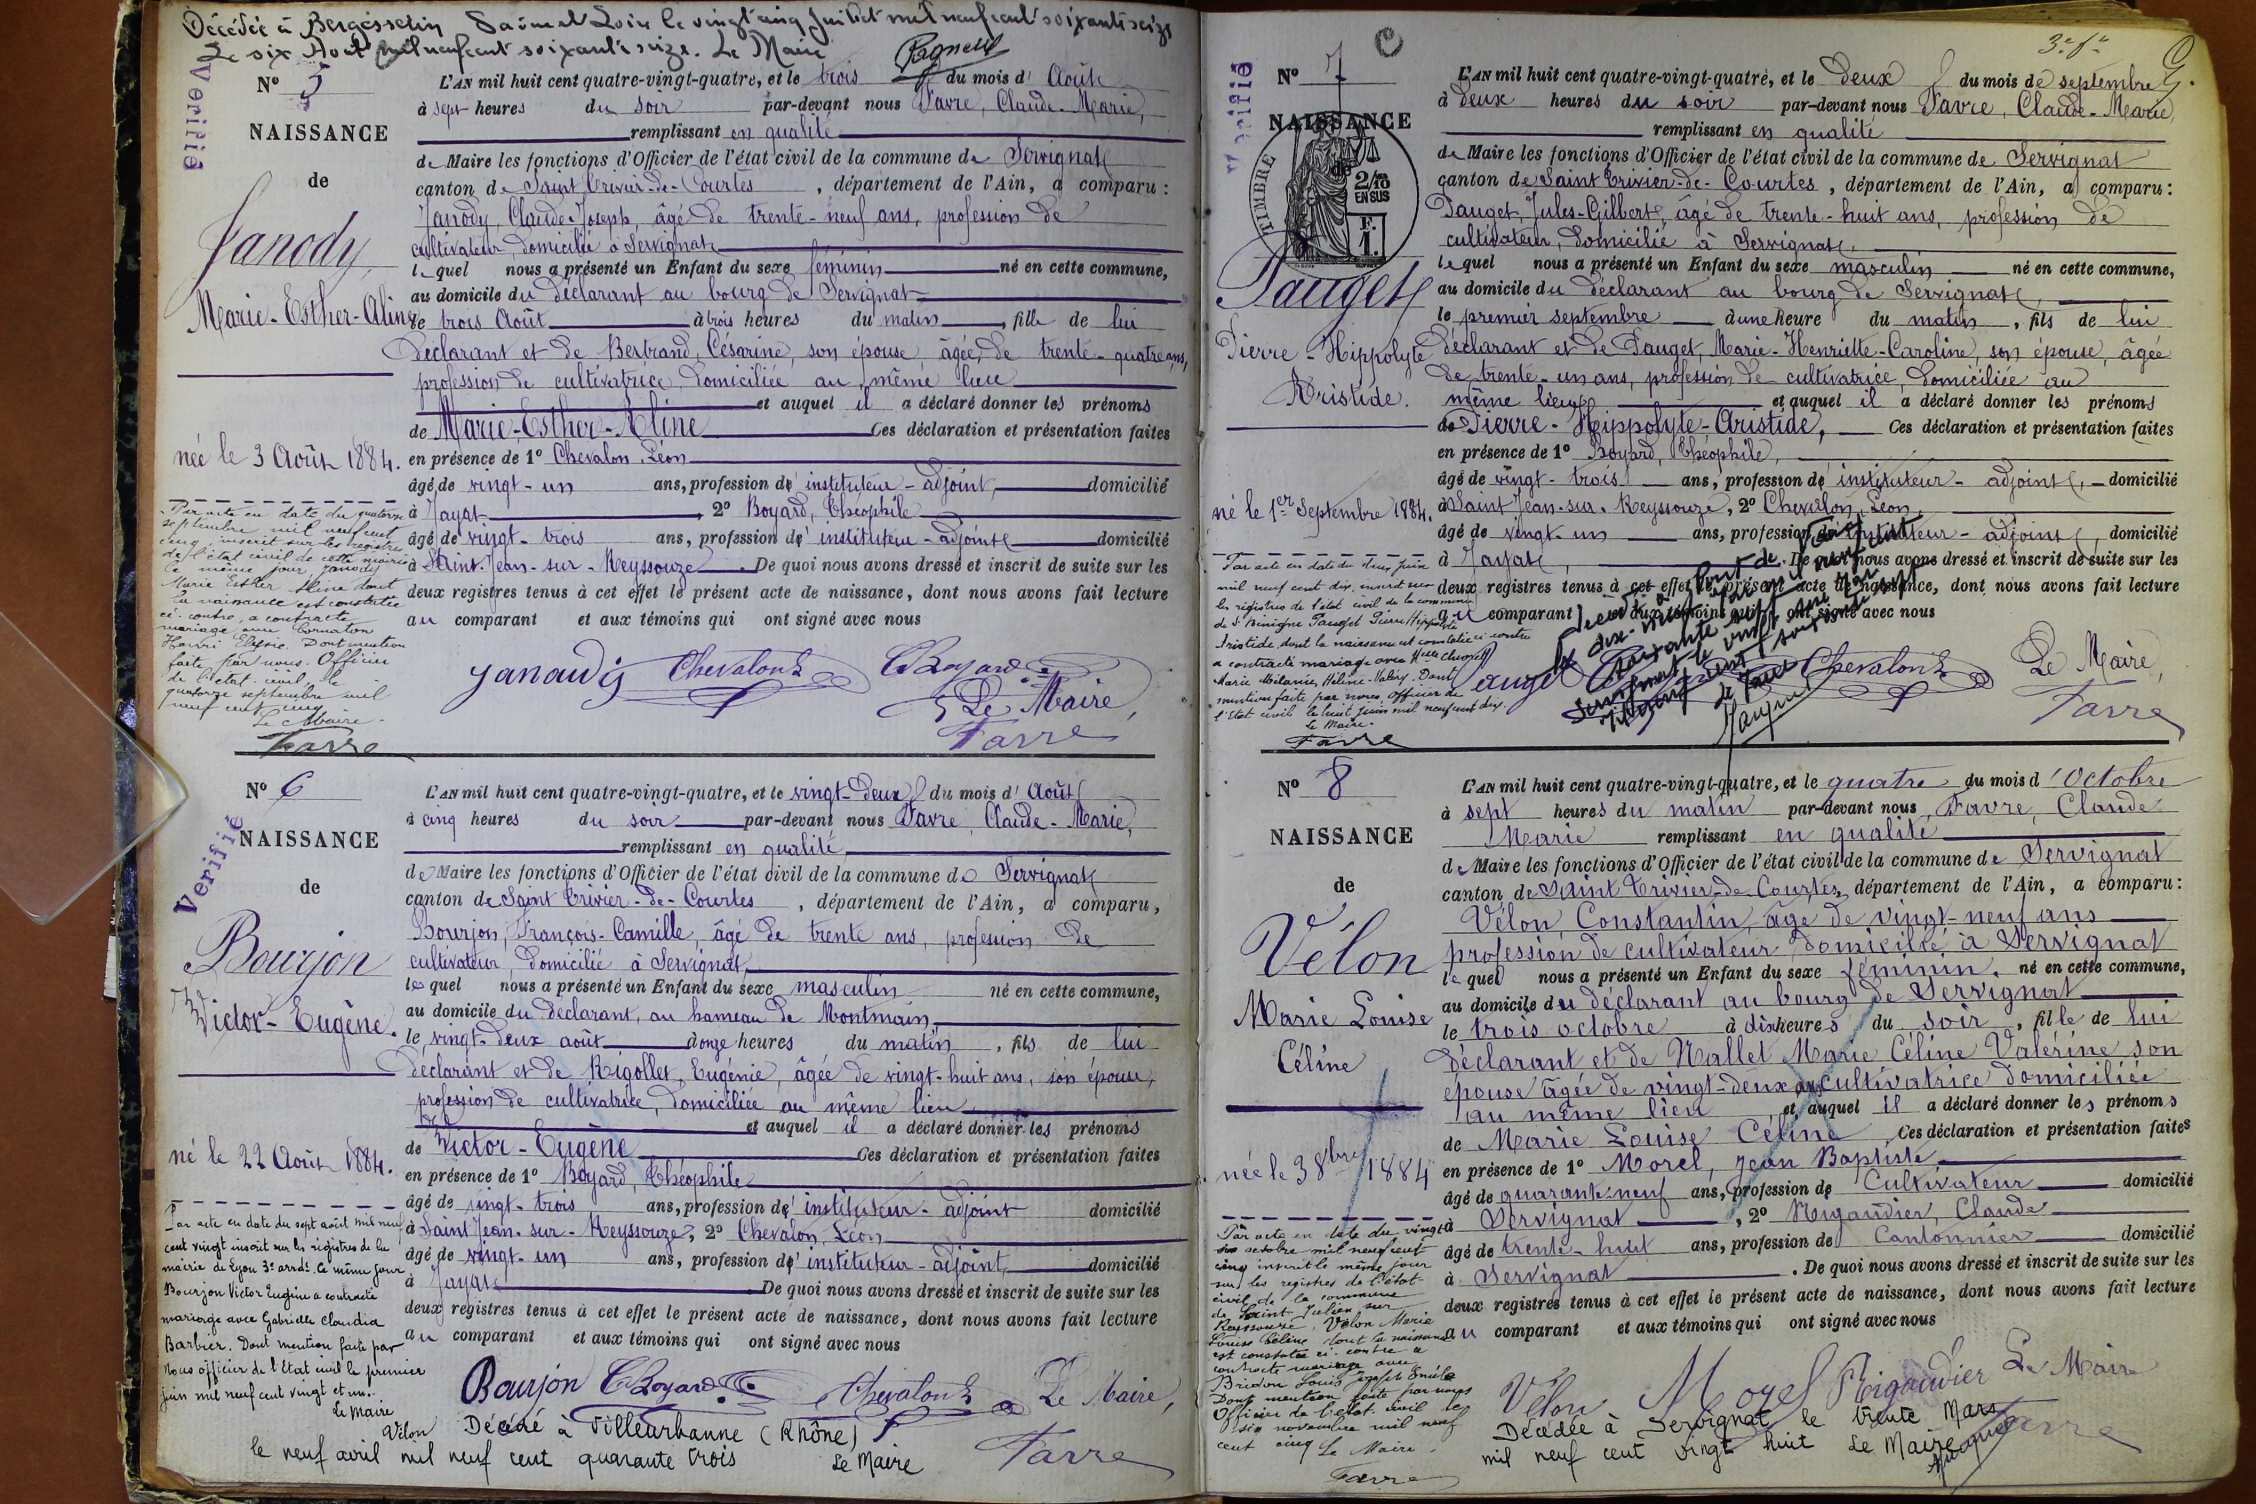 Décédée à Bergesserin Saône et Loire le vingt cinq Juillet mil neuf cent soixante seize
Le six Août mil neuf cent soixante seize. Le Maire
Vérifié
N° 5
NAISSANCE
de
Janody
Marie-Esther-Aline
née le 3 Août 1884.
Par acte en date du quatorze
septembre mil neuf cent
cinq, inscrit sur les registres
de l'état civil de cette mairie
le même jour Janody
Marie Esther Aline dont
la naissance est constatée
ci-contre, a contracté
mariage avec Cornaton
Henri Elysée. Dont mention
faite par nous Officier
de l'état civil, le
quatorze septembre mil
neuf cent cinq
Le Maire.
Favre
L'AN mil huit cent quatre-vingt-quatre, et le trois du mois d'Août
à sept heures du soir par-devant nous Favre, Claude-Marie,
remplissant en qualité
de Maire les fonctions d'Officier de l'état civil de la commune de Servignat
canton de Saint Trivier-de-Courtes, département de l'Ain, a comparu:
Janody, Claude-Joseph, âgé de trente-neuf ans, profession de
cultivateur, domicilié à Servignat
lequel nous a présenté un Enfant du sexe féminin né en cette commune,
au domicile du déclarant au bourg de Servignat
le trois Août à trois heures du matin, fille de lui
déclarant et de Bertrand, Césarine, son épouse, âgée de trente-quatre ans,
profession de cultivatrice, domiciliée au même lieu
et auquel il a déclaré donner les prénoms
de Marie-Esther-Aline Ces déclaration et présentation faites
en présence de 1° Chevalon, Léon
âgé de vingt-un ans, profession d'instituteur-adjoint, domicilié
à Jayat, 2° Boyard, Théophile
âgé de vingt-trois ans, profession d'instituteur-adjoint domicilié
à Saint-Jean-sur-Reyssouze. De quoi nous avons dressé et inscrit de suite sur les
deux registres tenus à cet effet le présent acte de naissance, dont nous avons fait lecture
au comparant et aux témoins qui ont signé avec nous
Janaudy Chevalon L Th Boyard
Le Maire,
Favre
Vérifié
N° 6
NAISSANCE
de
Bourjon
Victor-Eugène.
né le 22 Août 1884.
Par acte en date du sept août mil neuf
cent vingt inscrit sur les registres de la
mairie de Lyon 3e arrdt. le même jour
Bourjon Victor Eugène a contracté
mariage avec Gabrielle Claudia
Barbier. Dont mention faite par
nous officier de l'Etat civil le premier
juin mil neuf cent vingt et un.
Le Maire
Vélon
L'AN mil huit cent quatre-vingt-quatre, et le vingt-deux du mois d'Août
à cinq heures du soir par-devant nous Favre, Claude-Marie,
remplissant en qualité
de Maire les fonctions d'Officier de l'état civil de la commune de Servignat
canton de Saint Trivier-de-Courtes, département de l'Ain, a comparu,
Bourjon, François-Camille, âgé de trente ans, profession de
cultivateur, domicilié à Servignat,
lequel nous a présenté un Enfant du sexe masculin né en cette commune,
au domicile du déclarant, au hameau de Montmain,
le vingt-deux août à onze heures du matin, fils de lui
déclarant et de Rigollet, Eugénie, âgée de vingt-huit ans, son épouse,
profession de cultivatrice, domiciliée au même lieu
et auquel il a déclaré donner les prénoms
de Victor-Eugène Ces déclaration et présentation faites
en présence de 1° Boyard, Théophile
âgé de vingt-trois ans, profession d'instituteur-adjoint domicilié
à Saint Jean-sur-Reyssouze, 2° Chevalon, Léon
âgé de vingt-un ans, profession d'instituteur-adjoint, domicilié
à Jayat De quoi nous avons dressé et inscrit de suite sur les
deux registres tenus à cet effet le présent acte de naissance, dont nous avons fait lecture
au comparant et aux témoins qui ont signé avec nous
Bourjon Th Boyard Chevalon L Le Maire,
Favre
Décédé à Villeurbanne (Rhône)
le neuf avril mil neuf cent quarante trois Le Maire
3e fe
Vérifié
N° 7
NAISSANCE
de
TIMBRE
2/10
EN SUS
F.
1.
Pauget
Pierre-Hippolyte
Aristide.
né le 1er Septembre 1884.
Par acte en date du deux Juin
mil neuf cent dix, inscrit sur
les registres de l'état civil de la commune
de St Bénigne Pauget Pierre Hippolyte
Aristide, dont la naissance est constatée ci-contre
a contracté mariage avec
Marie Mélanie Hélène Valéry. Dont
mention faite par nous, officier de
l'Etat civil le huit Juin mil neuf cent dix.
Le Maire.
Favre
L'AN mil huit cent quatre-vingt-quatre, et le deux du mois de septembre
à deux heures du soir par-devant nous Favre, Claude-Marie,
remplissant en qualité
de Maire les fonctions d'Officier de l'état civil de la commune de Servignat
canton de Saint Trivier-de-Courtes, département de l'Ain, a comparu:
Pauget, Jules-Gilbert, âgé de trente-huit ans, profession de
cultivateur, domicilié à Servignat,
lequel nous a présenté un Enfant du sexe masculin né en cette commune,
au domicile du déclarant au bourg de Servignat,
le premier septembre à une heure du matin, fils de lui
déclarant et de Pauget, Marie-Henriette-Caroline, son épouse, âgée
de trente-un ans, profession de cultivatrice, domiciliée au
même lieu et auquel il a déclaré donner les prénoms
de Pierre-Hippolyte-Aristide, Ces déclaration et présentation faites
en présence de 1° Boyard, Théophile,
âgé de vingt-trois ans, profession d'instituteur-adjoint, domicilié
à Saint Jean-sur-Reyssouze, 2° Chevalon, Léon
âgé de vingt-un ans, profession d'instituteur-adjoint, domicilié
à Jayat, De quoi nous avons dressé et inscrit de suite sur les
deux registres tenus à cet effet le présent acte de naissance, dont nous avons fait lecture
au comparant et aux témoins qui ont signé avec nous
Décédé à Pont-de-
Servignat le vingt
Le Maire
Pauget Chevalon L Le Maire,
Favre
N° 8
NAISSANCE
de
Vélon
Marie Louise
Céline
née le 3 8bre 1884
Par acte en date du vingt
octobre mil neuf cent
cinq inscrit le même jour
sur les registres de l'état
civil de la commune
de Saint Julien sur
Reyssouze, Vélon Marie
Louise Céline dont la naissance
est constatée ci-contre a
contracté mariage avec
Bridon Louis Joseph Emile
Dont mention faite par nous
Officier de l'état civil le
six novembre mil neuf
cent cinq Le Maire.
Favre
L'AN mil huit cent quatre-vingt-quatre, et le quatre du mois d'Octobre
à sept heures du matin par-devant nous Favre, Claude
Marie remplissant en qualité
de Maire les fonctions d'Officier de l'état civil de la commune de Servignat
canton de Saint Trivier-de-Courtes, département de l'Ain, a comparu:
Vélon, Constantin, âgé de vingt-neuf ans
profession de cultivateur domicilié à Servignat
lequel nous a présenté un Enfant du sexe féminin, né en cette commune,
au domicile du déclarant au bourg de Servignat
le trois octobre à dix heures du soir, fille de lui
déclarant et de Mallet Marie Céline Valérine son
épouse âgée de vingt-deux ans cultivatrice domiciliée
au même lieu, et auquel il a déclaré donner les prénoms
de Marie Louise Céline Ces déclaration et présentation faites
en présence de 1° Morel, Jean Baptiste
âgé de quarante-neuf ans, profession de Cultivateur domicilié
à Servignat, 2° Rigaudier, Claude
âgé de trente-huit ans, profession de Cantonnier domicilié
à Servignat. De quoi nous avons dressé et inscrit de suite sur les
deux registres tenus à cet effet le présent acte de naissance, dont nous avons fait lecture
au comparant et aux témoins qui ont signé avec nous
Vélon Morel Rigaudier Le Maire
Favre
Décédée à Servignat le trente Mars
mil neuf cent vingt huit Le Maire